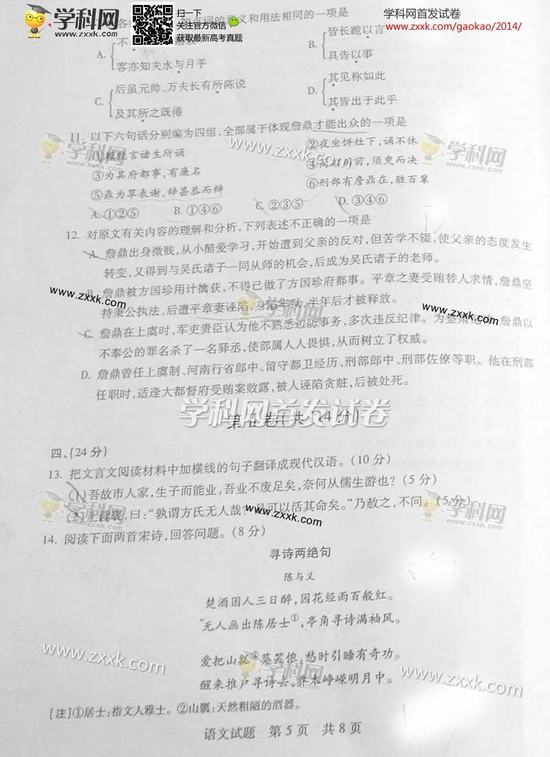 学科网
WWW.ZXXK.COM
扫一下
关注官方微信
获取最新高考真题
学科网首发试卷
www.zxxk.com/gaokao/2014/
义和用法相同的一项是
A.
B.
皆长跪以言
具告以事
客亦知夫水与月乎
C.
后虽元帅,万夫长有所陈说
及其所之既倦
D.
其见称如此
其皆出于此乎
11. 以下六句话分别编为四组,全部属于体现詹鼎才能出众的一项是
言诸生所诵
②夜坐饼灶下,诵不休
③为其府都事,有廉名
前,须臾而决
⑤鼎为草表谢,辞甚恭而辩
⑥刑部有詹鼎在,胜百辈
A.①②⑤
B.①④⑥
C.②③⑤
D.③④⑥
12. 对原文有关内容的理解和分析,下列表述不正确的一项是
A. 詹鼎出身微贱,从小酷爱学习,开始遭到父亲的反对,但苦学不辍,使父亲的态度发生
转变,又得到与吴氏诸子一同从师的机会,后成为吴氏诸子的老师。
B. 詹鼎被方国珍用计擒获,不得已做了方国珍府都事。平章之妻受贿替人求情,詹鼎坚
持秉公执法,后遭平章妻诬陷,半年后才被释放。
C. 詹鼎在上虞时,军吏贵臣认为他不熟悉边防事务,多次违反纪律。为 詹鼎以
不奉公的罪名杀了一名驿丞,使部属人人畏惧,从而树立了权威。
D. 詹鼎曾任上虞制、河南行省郎中、留守都卫经历、刑部郎中、刑部佐僚等职。他在刑部
任职时,适逢大都督府受贿案败露,被人诬陷贪赃,后被处死。
学科网首发试卷
四、(24分)
13. 把文言文阅读材料中加横线的句子翻译成现代汉语。(10分)
(1)吾故市人家,生子而能业,吾业不废足矣,奈何从儒生游也?(5分)
曰:“孰谓方氏无人哉?可以活其命矣。”乃赦之,不问。(5分)
14. 阅读下面两首宋诗,回答问题。(8分)
寻诗两绝句
陈与义
楚酒困人三日醉,园花经雨百般红。
无人画出陈居士①,亭角寻诗满袖风。
爱把山瓢②莫笑侬,愁时引睡有奇功。
醒来推户寻诗去,乔木峥嵘明月中。
[注]①居士:指文人雅士。②山瓢:天然粗陋的酒器。
语文试题 第5页 共8页